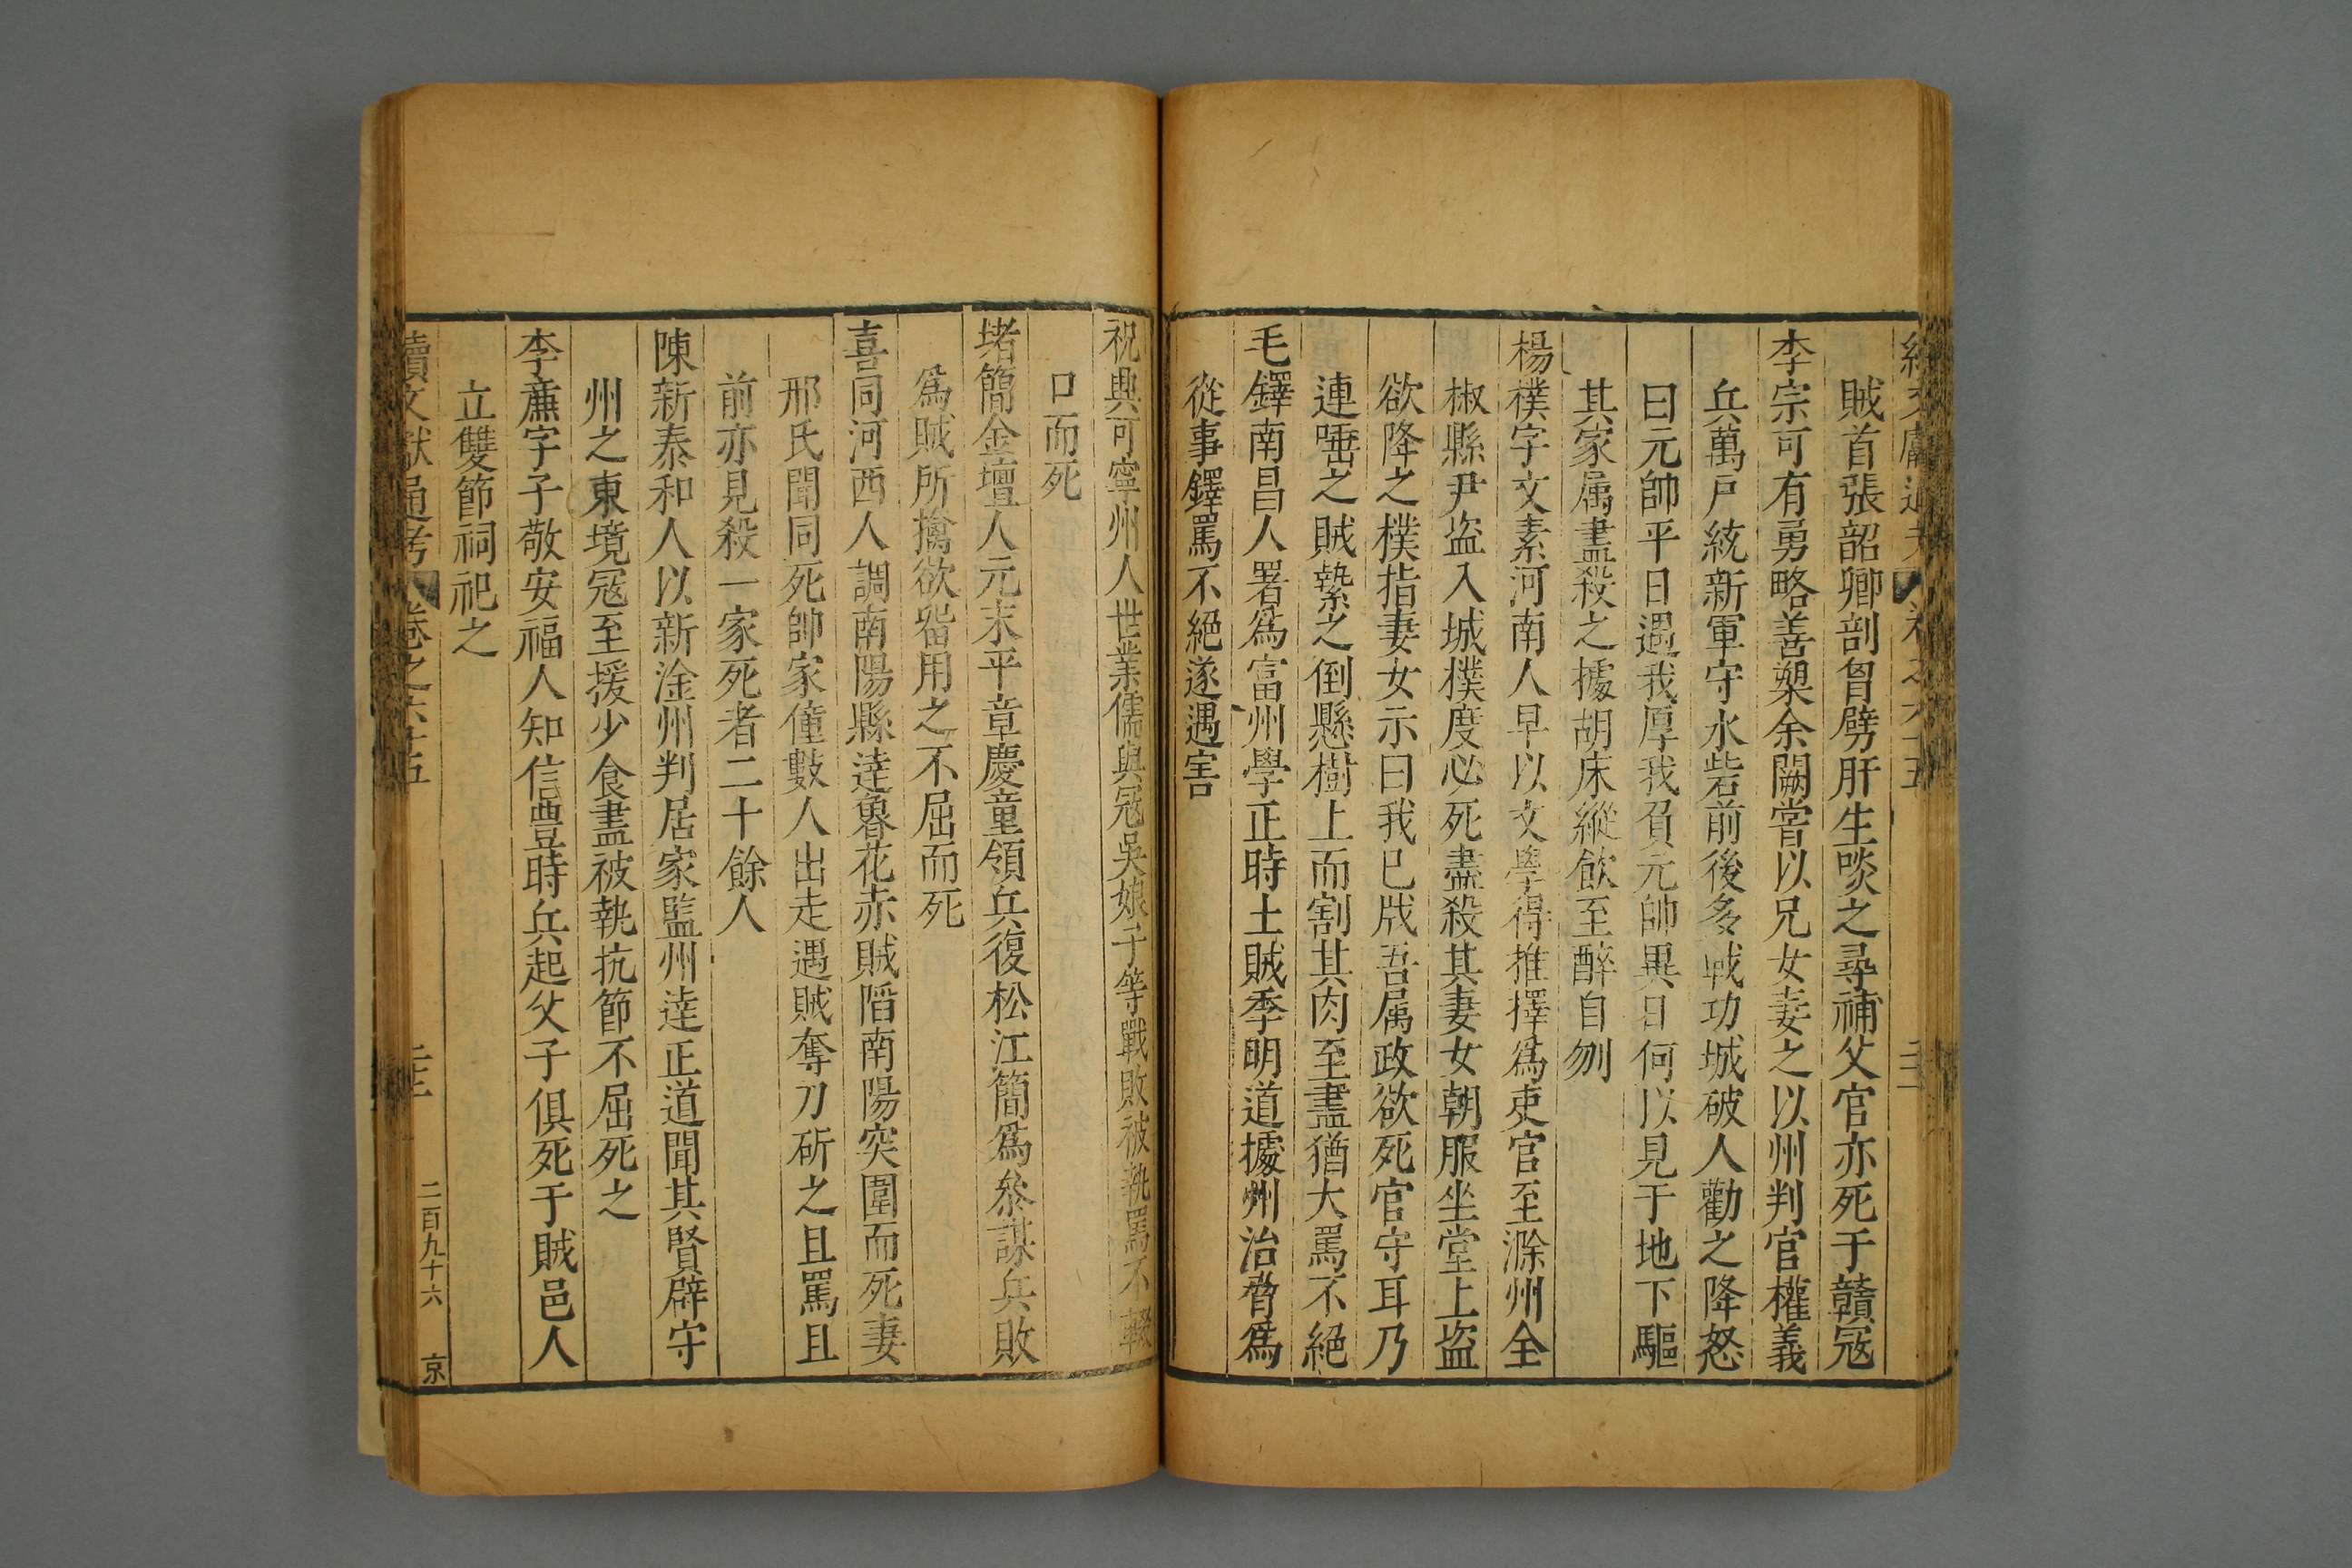 續文獻通考 卷之六十五
賊首張韶卿剖胷劈肝生啖之尋補父官亦死于贛冦
李宗可有勇略善槊余闕嘗以兄女妻之以州判官權義
兵萬戸統新軍守水砦前後多戰功城破人勸之降怒
曰元帥平日遇我厚我負元帥異日何以見于地下驅
其家属盡殺之據胡床縱飲至醉自刎
楊樸字文素河南人早以文學得推擇爲吏官至滁州全
椒縣尹盗入城樸度必死盡殺其妻女朝服坐堂上盗
欲降之樸指妻女示曰我已戕吾属政欲死官守耳乃
連唾之賊縶之倒懸樹上而割其肉至盡猶大罵不絕
毛鐸南昌人署爲富州學正時土賊季明道據州治脅爲
從事鐸罵不絕遂遇害
祝與可寧州人世業儒與冦吳娘子等戰敗被執罵不輟
口而死
堵簡金壇人元末平章慶童領兵復松江簡爲叅謀兵敗
爲賊所擒欲畱用之不屈而死
喜同河西人調南陽縣逹魯花赤賊䧟南陽突圍而死妻
邢氏聞同死帥家僮數人出走遇賊奪刀斫之且罵且
前亦見殺一家死者二十餘人
陳新泰和人以新淦州判居家監州逹正道聞其賢辟守
州之東境冦至援少食盡被執抗節不屈死之
李廉字子敬安福人知信豐時兵起父子俱死于賊邑人
立雙節祠祀之
續文獻通考 卷之六十五 二百九十六 京